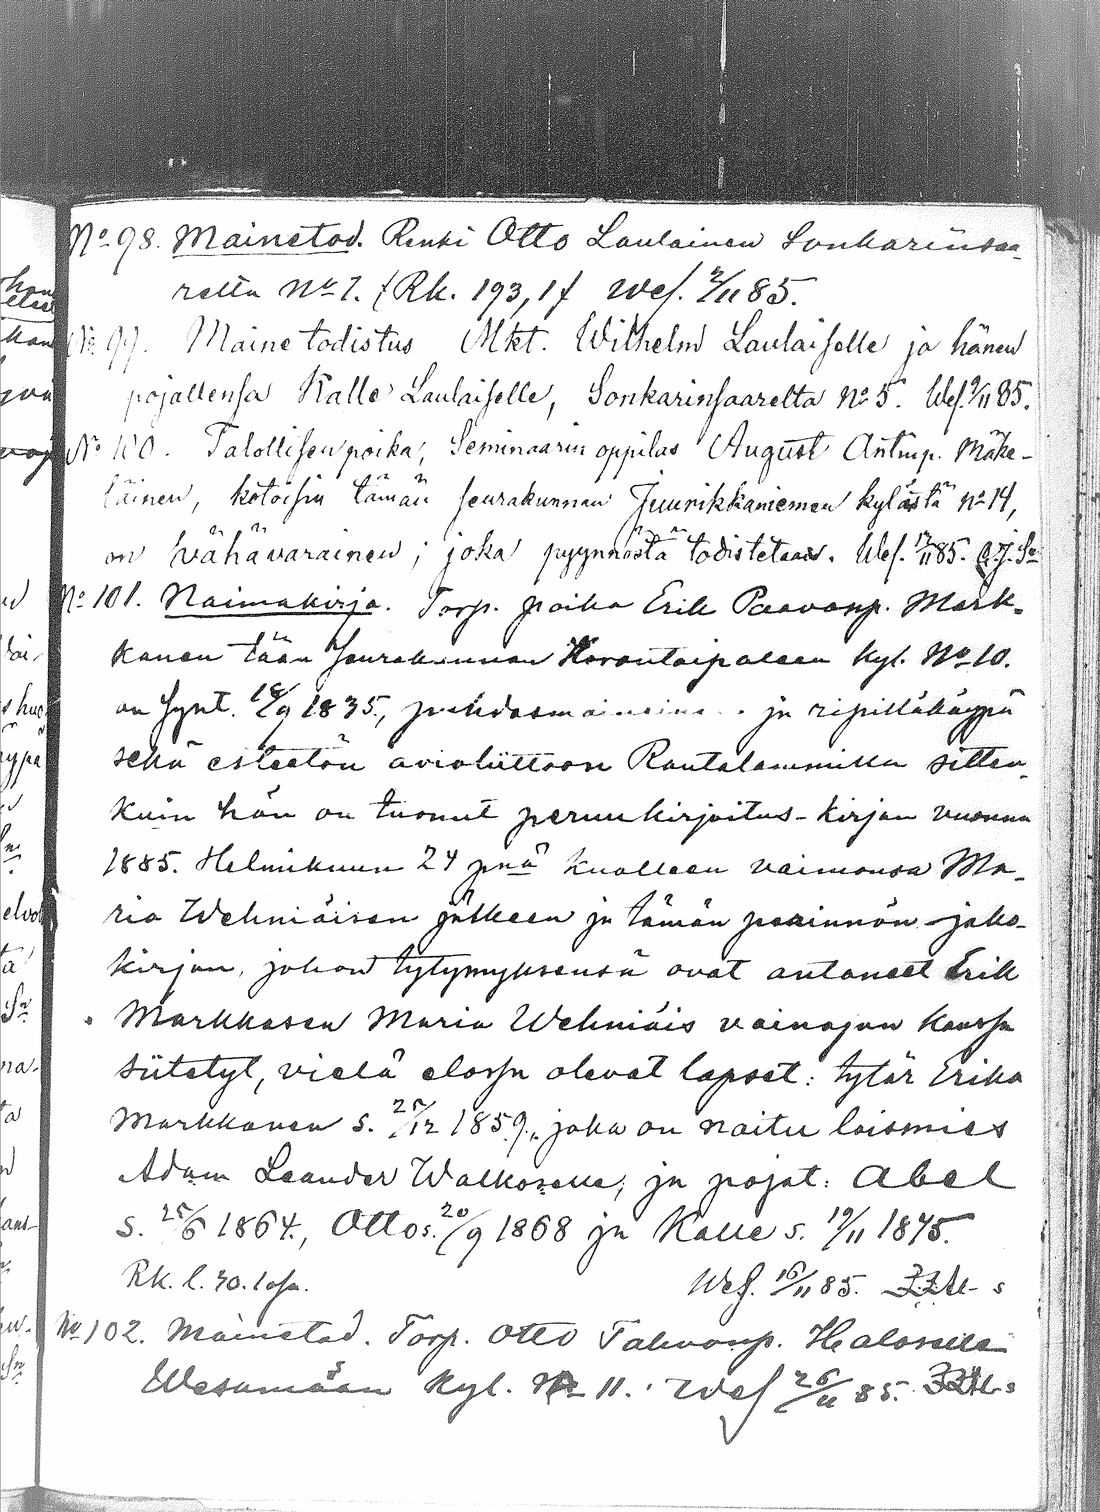 No 98. Mainetod. Renki Otto Laulainen Sonkarinsaa-
relta No 7. (Rk. 193,1) Wes. 2/11 85.
No 99. Mainetodistus Mkt. Wilhelm Laulaiselle ja hänen
pojallensa Kalle Laulaiselle, Sonkarinsaarelta No 5. Wes. 9/11 85.
No 100. Talollisen poika, Seminaarin oppilas August Antinp. Mäke-
läinen, kotoisin tämän seurakunnan Juurikkaniemen kylästä No 14,
on vähävarainen; joka pyynnöstä todistetaan. Wes. 12/11 85.
No 101. Naimakirja. Torp. poika Erik Paavonp. Mark-
kanen tään seurakunnan Horontaipaleen kyl. No 10.
on synt. 18/9 1835, puhdasmaineinen ja ripilläkäypä
sekä esteetön avioliittoon Rautalammilla sitten-
kuin hän on tuonut perunkirjoitus-kirjan vuonna
1885. Helmikuun 24 pnä kuolleen vaimonsa Ma-
ria Wehniäisen jälkeen ja tämän perinnön jako-
kirjan, johon tytymyksensä ovat antaneet Erik
Markkasen Maria Wehniäis vainajan kanssa
siitetyt, vielä elossa olevat lapset: tytär Erika
Markkanen s. 25/12 1859, joka on naitu loismies
Adam Leander Walkoselle; ja pojat: Abel
s. 25/6 1864., Otto s. 20/9 1868 ja Kalle s. 19/11 1875.
Rk. l. 70. Wes. 16/11 85.
No 102. Mainetod. Torp. Otto Tahvonp. Haloselle
Wesamäen kyl. No 11. Wes 26/11 85.